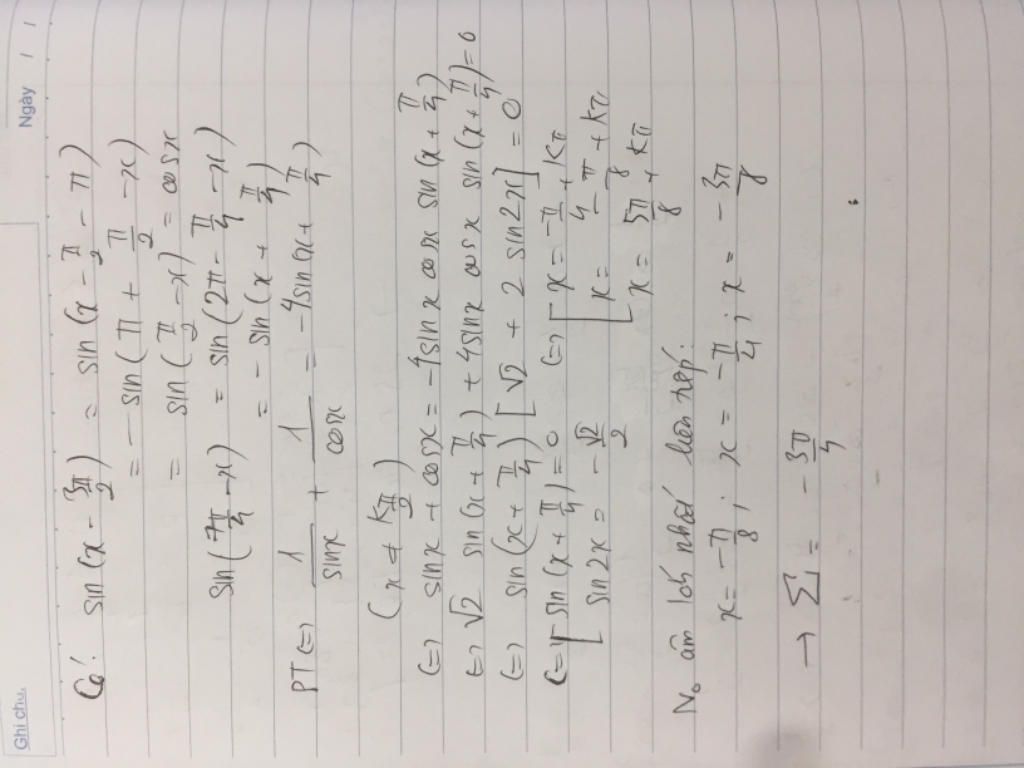 Ghi chú.
Ngày / /
Có: sin(x - 3π/2) = sin(x - π/2 - π)
= - sin(π + π/2 - x)
= sin(π/2 - x) = cosx
sin(7π/4 - x) = sin(2π - π/4 - x)
= - sin(x + π/4)
PT ⇔ 1/sinx + 1/cosx = -4sin(x + π/4)
(x ≠ kπ/2)
⇔ sinx + cosx = -4sinx cosx sin(x + π/4)
⇔ √2 sin(x + π/4) + 4sinx cosx sin(x + π/4) = 0
⇔ sin(x + π/4) [√2 + 2 sin2x] = 0
⇔ [ sin(x + π/4) = 0 ⇔ [ x = -π/4 + kπ
[ sin2x = -√2/2 [ x = -π/8 + kπ
x = 5π/8 + kπ
No âm lớn nhất liên tiếp:
x = -π/8; x = -π/4; x = -3π/8
→ Σ = -3π/4